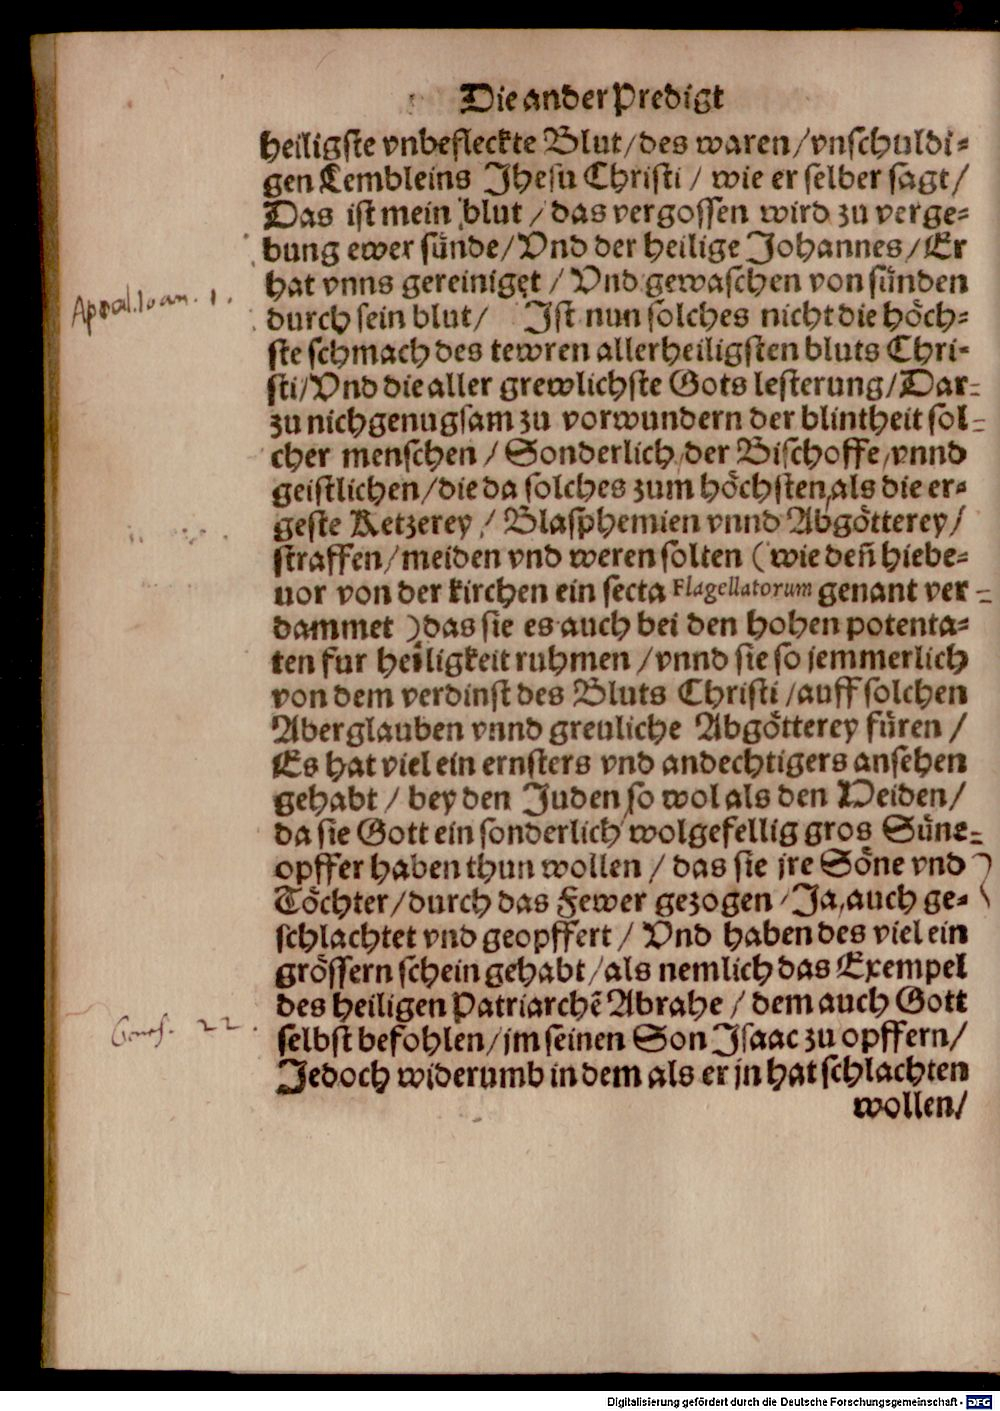 Die ander Predigt
heiligste vnbefleckte Blut/des waren/vnschuldi-
gen Lembleins Jhesu Christi / wie er selber sagt/
Das ist mein blut / das vergossen wird zu verge-
bung ewer sünde/Vnd der heilige Johannes/Er
hat vnns gereiniget / Vnd gewaschen von sünden
Apocal. Ioan. 1.
durch sein blut/ Ist nun solches nicht die höch-
ste schmach des tewren allerheiligsten bluts Chri-
sti/Vnd die aller grewlichste Gots lesterung/Dar-
zu nich genugsam zu vorwundern der blintheit sol-
cher menschen / Sonderlich der Bischoffe vnnd
geistlichen/die da solches zum höchsten als die er-
geste Ketzerey / Blasphemien vnnd Abgötterey/
straffen/meiden vnd weren solten (wie deñ hiebe-
uor von der kirchen ein secta Flagellatorum genant ver
dammet )das sie es auch bei den hohen potenta-
ten fur heiligkeit ruhmen /vnnd sie so jemmerlich
von dem verdinst des Bluts Christi /auff solchen
Aberglauben vnnd greuliche Abgötterey füren /
Es hat viel ein ernsters vnd andechtigers ansehen
gehabt / bey den Juden so wol als den Heiden/
da sie Gott ein sonderlich wolgefellig gros Süne-
opffer haben thun wollen / das sie jre Söne vnd
Töchter/durch das Fewer gezogen /Ja, auch ge-
schlachtet vnd geopffert / Vnd haben des viel ein
grössern schein gehabt/als nemlich das Exempel
des heiligen Patriarchē Abrahe / dem auch Gott
Genes. 22.
selbst befohlen/jm seinen Son Isaac zu opffern/
Jedoch widerumb in dem als er jn hat schlachten
wollen/
Digitalisierung gefördert durch die Deutsche Forschungsgemeinschaft - DFG